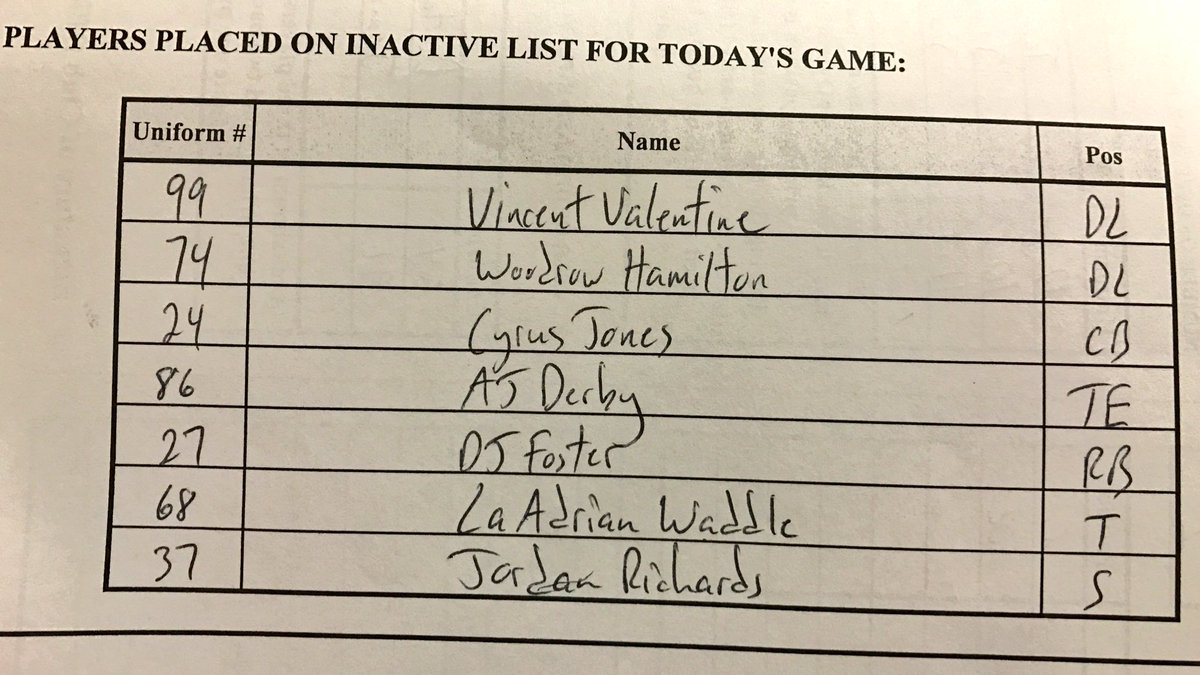 PLAYERS PLACED ON INACTIVE LIST FOR TODAY'S GAME:
Uniform # Name Pos
99 Vincent Valentine DL
74 Woodrow Hamilton DL
24 Cyrus Jones CB
86 AJ Derby TE
27 DJ Foster RB
68 La Adrian Waddle T
37 Jordan Richards S